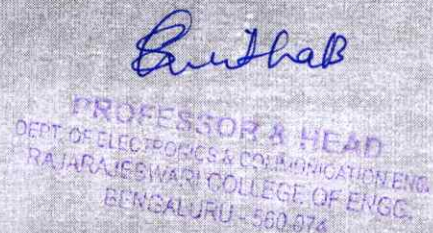 PROFESSOR & HEAD
DEPT. OF ELECTRONICS & COMMUNICATION ENGG.
RAJARAJESWARI COLLEGE OF ENGG.
BENGALURU - 560 074